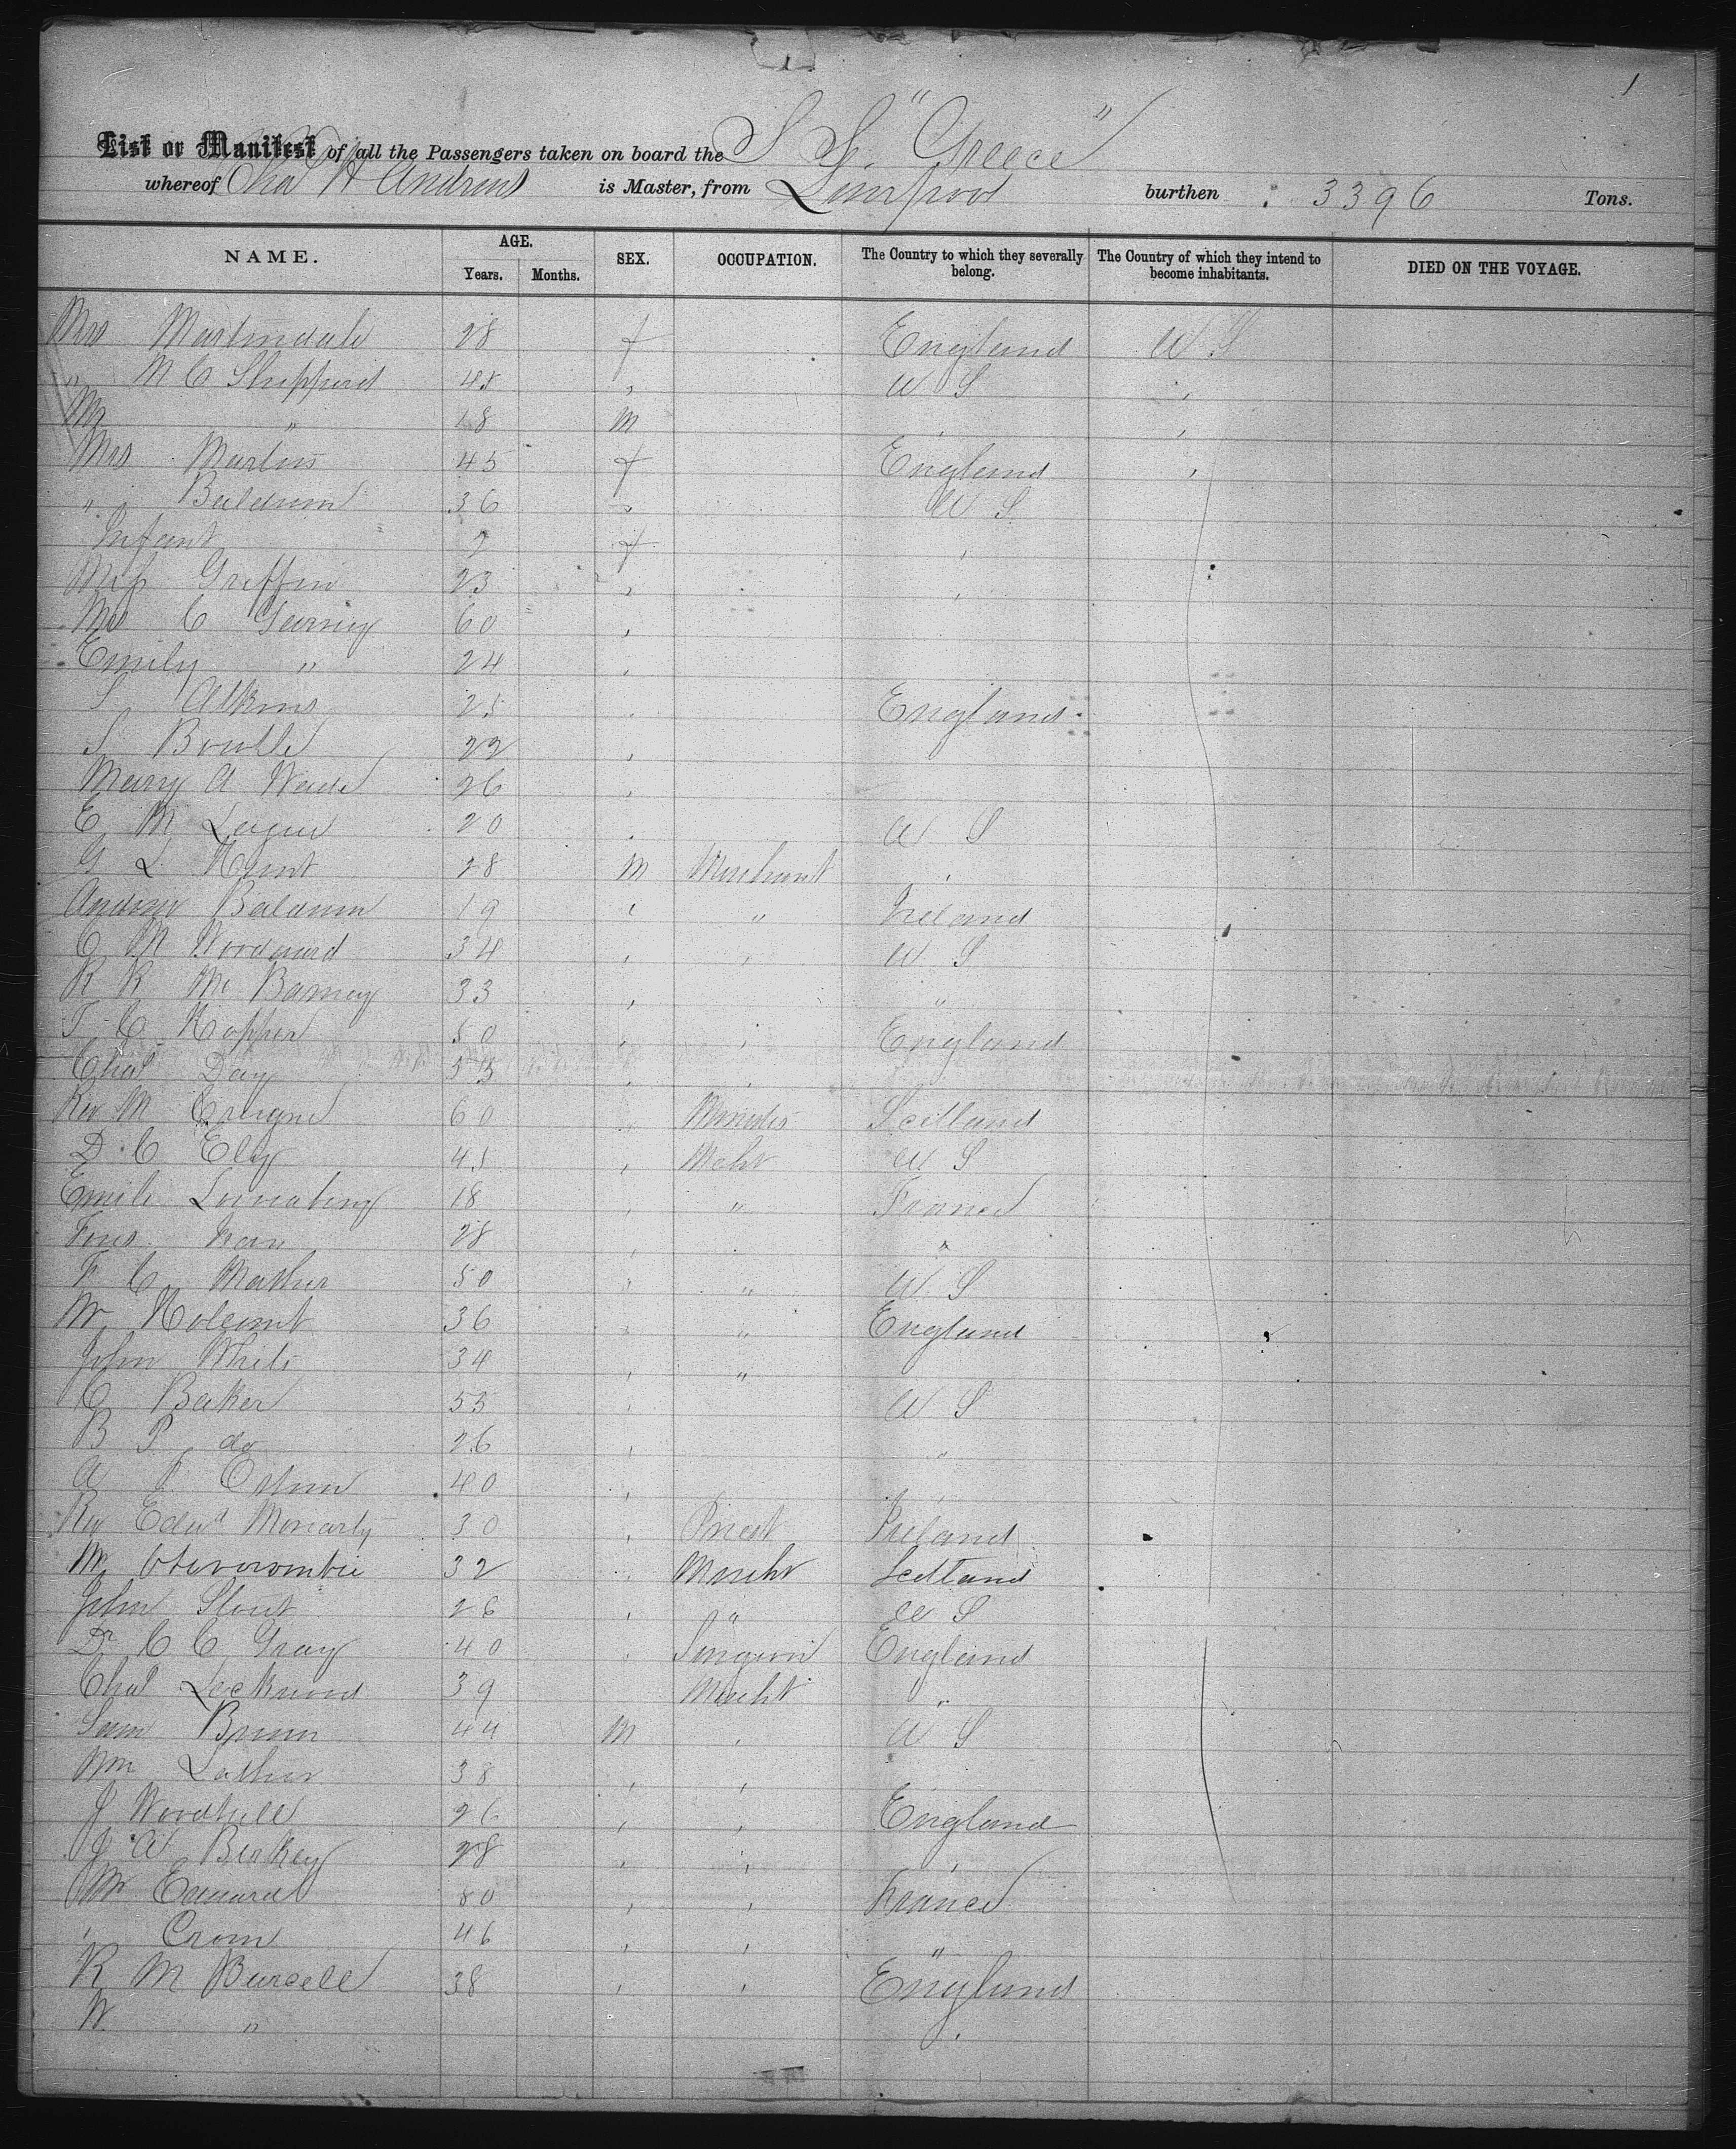 1
List or Manifest of all the Passengers taken on board the S S. "Greece"
whereof Chas W Andrews is Master, from Liverpool burthen : 3396 Tons.
NAME. AGE. Years. Months. SEX. OCCUPATION. The Country to which they severally belong. The Country of which they intend to become inhabitants. DIED ON THE VOYAGE.
Mrs Martindale 28 f England U S
" M C Sheppard 45 " U S "
Mr " 18 M "
Mrs Martin 45 f England "
" Baldwin 36 " U S
Infant 2 f "
Miss Griffin 23 " "
Mrs C Gearing 60 "
Emily " 24 "
S Atkins 25 " England
S 22 "
Mary A Wade 26 "
E M 20 " U S
G L Hunt 28 M Merchant "
Andrew Baldwin 19 " " Ireland
C M Woodward 34 " " U S
R R Mc Barney 33 " "
T C Hopper 50 " " England
Chas Day 55 " "
Rev M 60 " Minister Scotland
D C Eley 45 " Mcht U S
Emile 18 " " France
28 " "
F C Mather 50 " " U S
Mr 36 " " England
John White 34 " "
C Baker 55 " U S
B P do 26 " "
A 40 " "
Rev Edwd Moriarty 30 " Priest Ireland
Mr Abercrombie 32 " Mercht Scotland
John Stout 26 " " U S
Dr C C Gray 40 " Surgeon England
Chas Lockwood 39 Mercht "
Sam Brown 44 M " U S
Wm 38 " "
J Woodhull 26 " " England
J A 28 " " "
Mr Edward 80 " " France
" Crom 46 " " "
R M Burcell 38 " " England
W " "